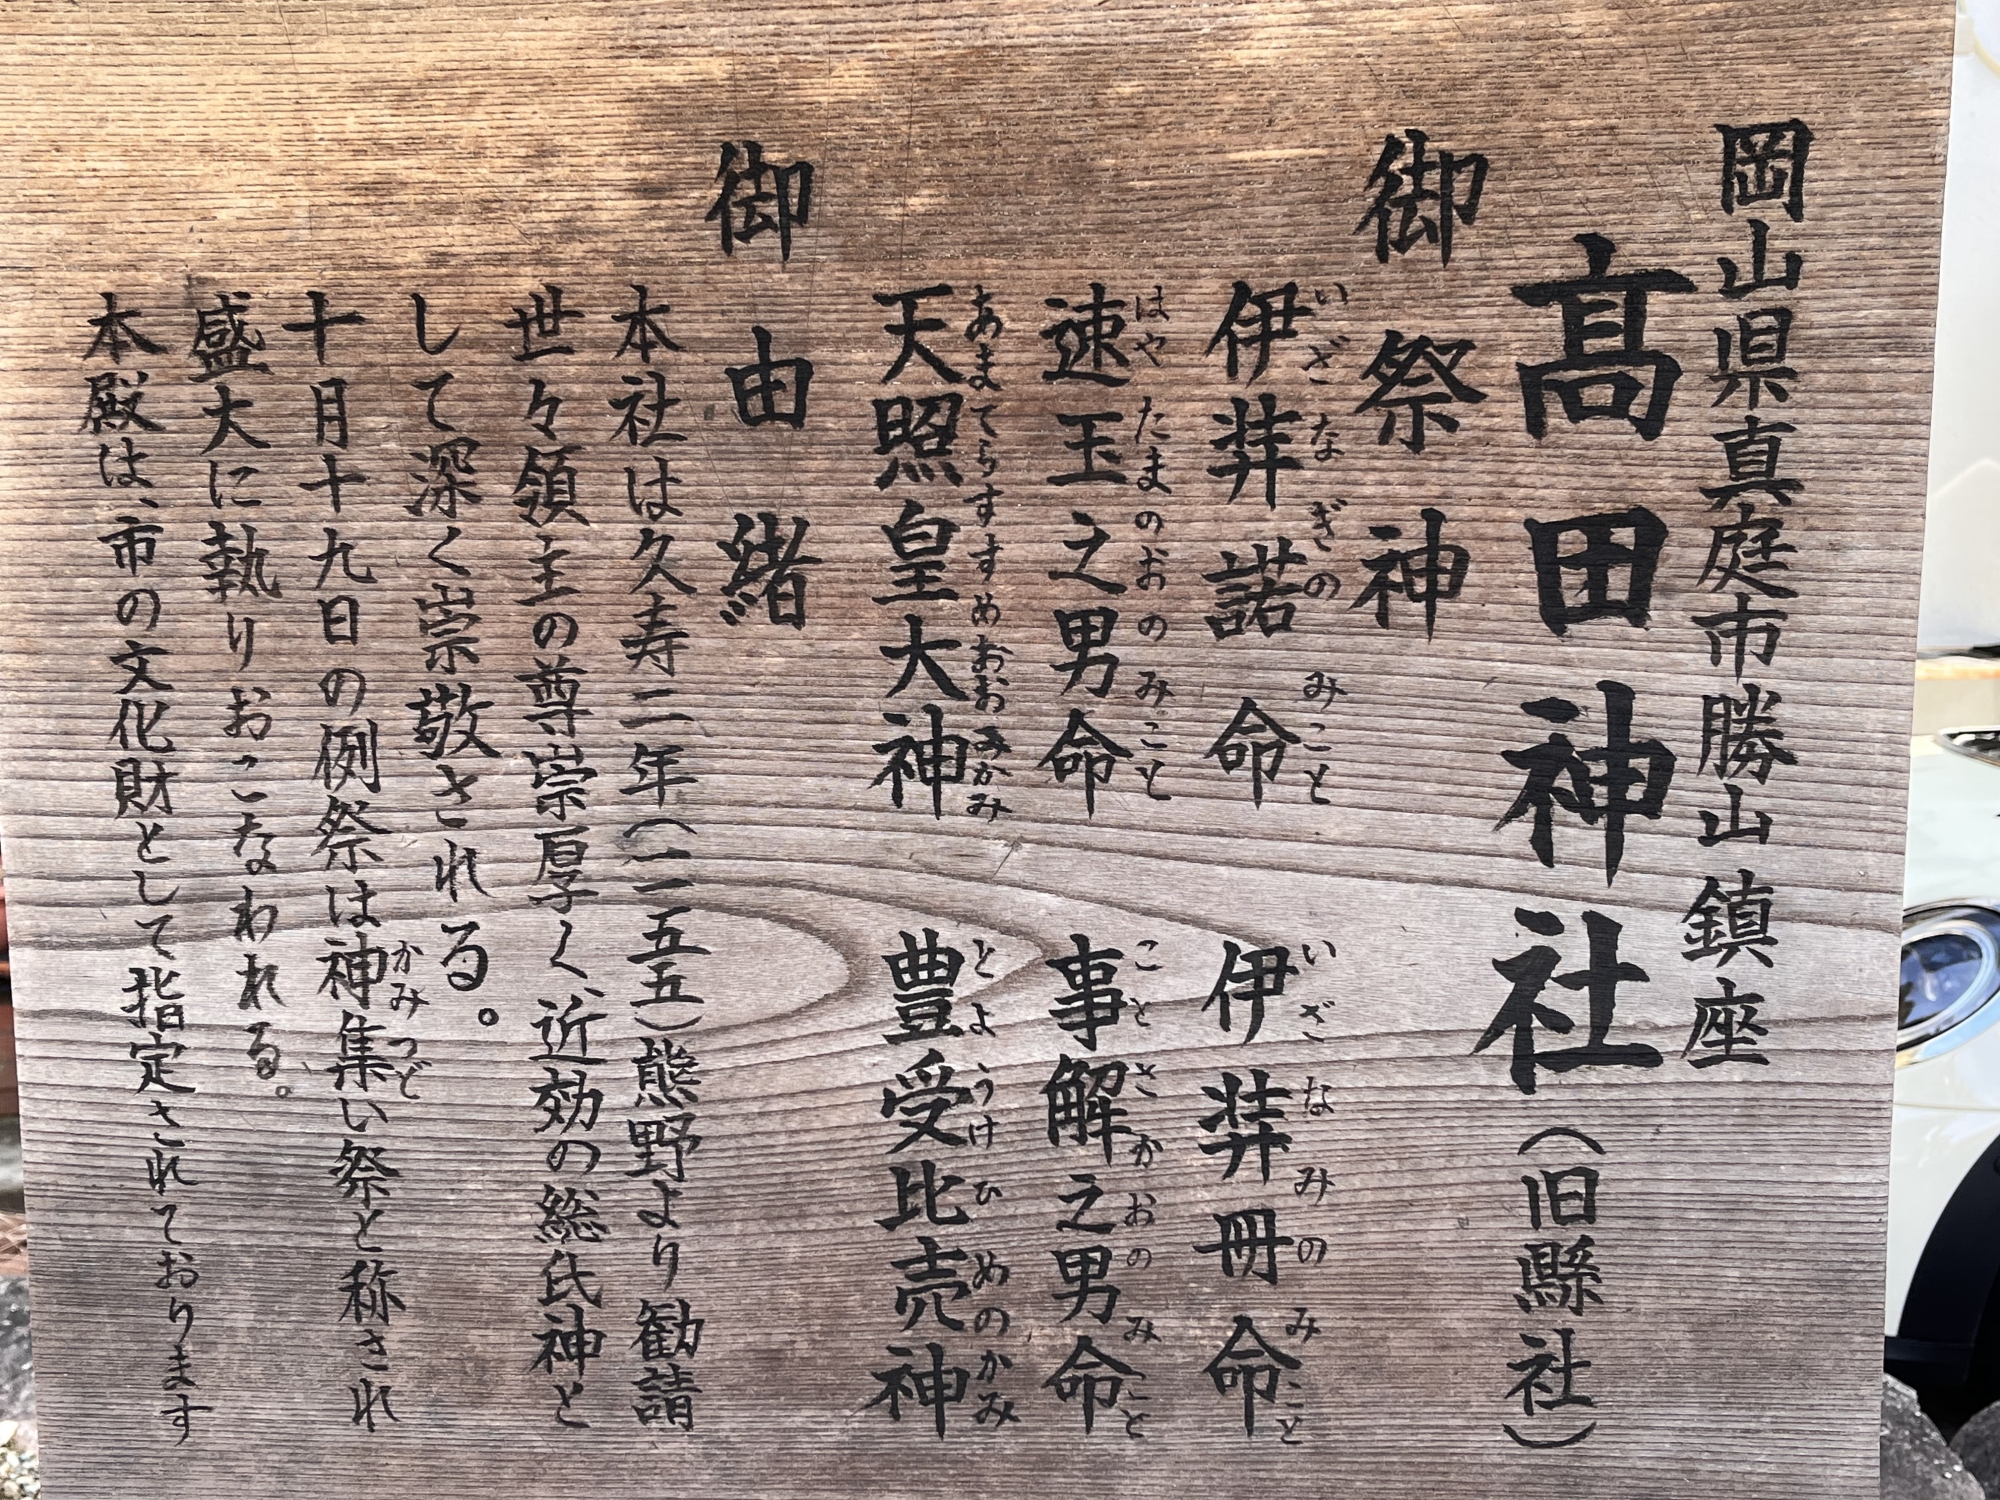 岡山県真庭市勝山鎮座
髙田神社(旧縣社)
御祭神
伊弉諾命 伊弉冊命
いざなぎのみこと いざなみのみこと
速玉之男命 事解之男命
はやたまのおのみこと ことさかおのみこと
天照皇大神 豊受比売神
あまてらすすめおおみかみ とようけひめのかみ
御由緒
本社は久寿二年(一一五五)熊野より勧請
世々領主の尊崇厚く、近効の総氏神と
して深く崇敬される。
十月十九日の例祭は神集い祭と称され
かみつど
盛大に執りおこなわれる。
本殿は、市の文化財として指定されております